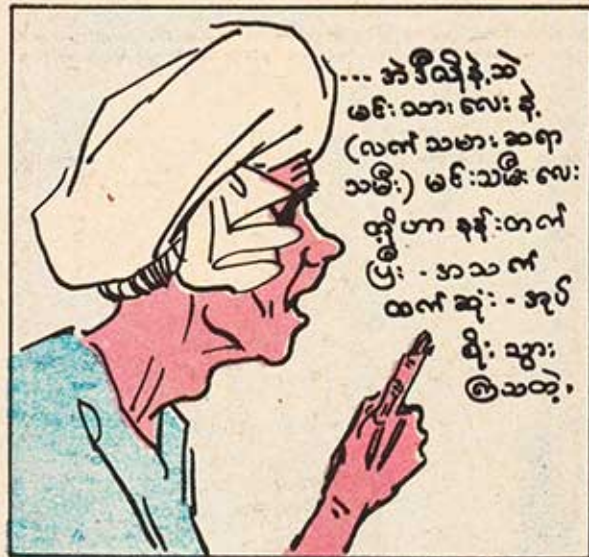 ... အဲဒီလိုနဲ့ ဆဲ
မင်းသားလေးနဲ့
(လက်သမားဆရာ
သမီး) မင်းသမီးလေး
တို့ဟာ နန်းတက်
ပြီး - အသက်
ထက်ဆုံး - အုပ်
စိုးသွား
ကြသတဲ့.